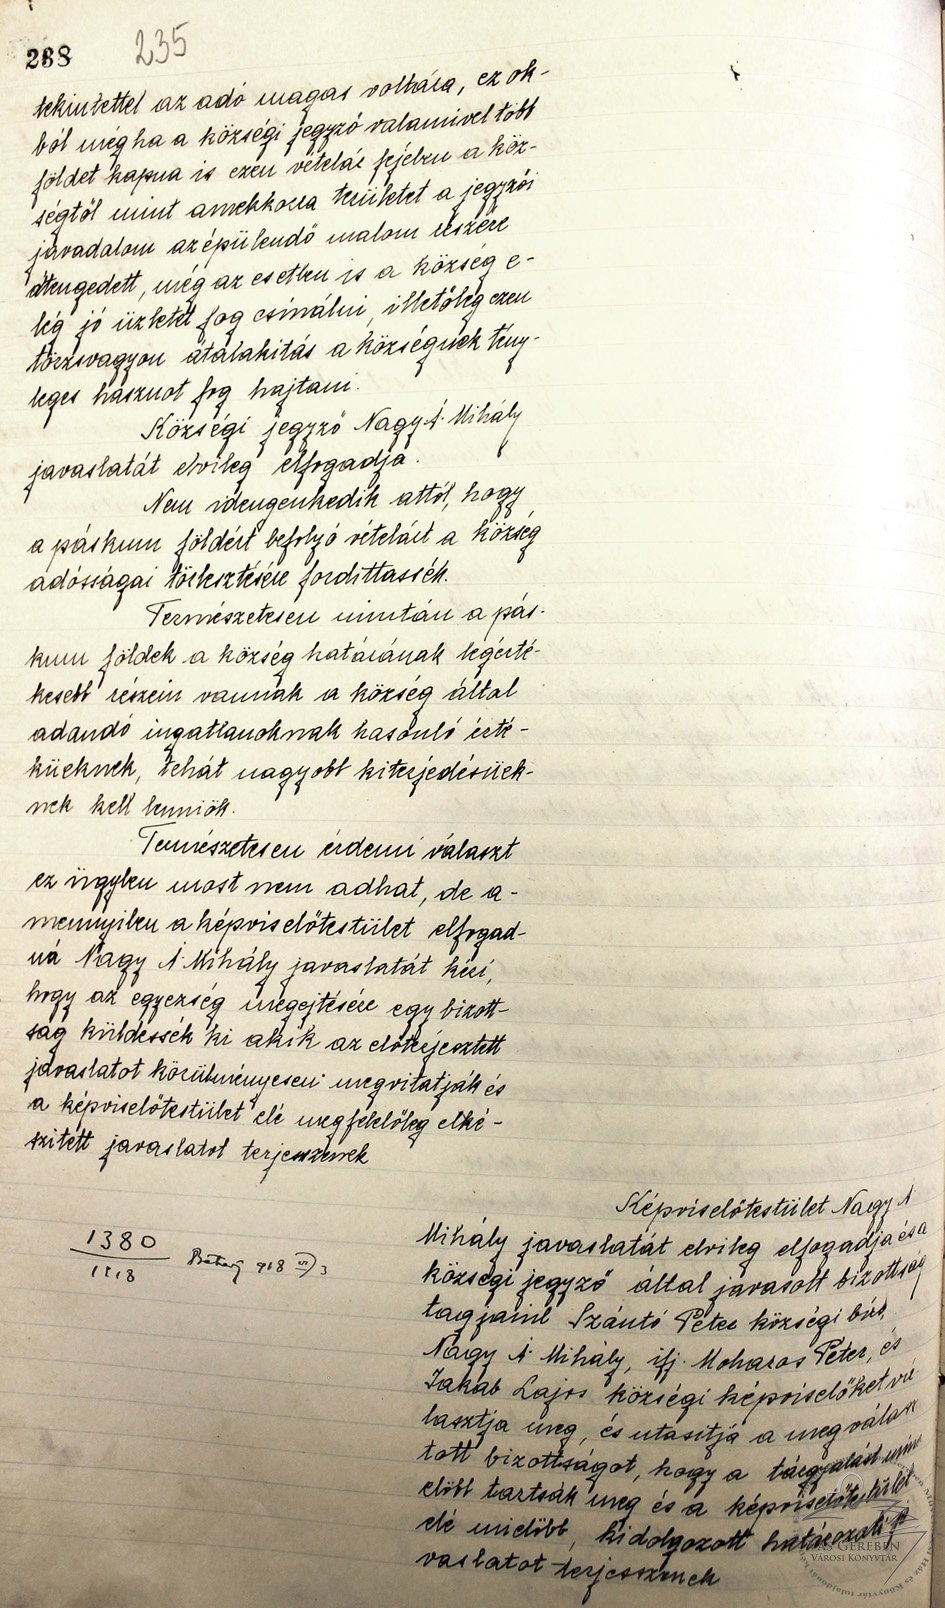 238 235
tekintettel az adó magas voltára, ez ok-
ból mégha a községi jegyző valamivel több
földet kapna is ezen vételár fejében a köz-
ségtől mint amekkora területet a jegyzői
javadalom az épülendő malom részére
átengedett, még az esetben is a község e-
lég jó üzletet fog csinálni, illetőleg ezen
törzsvagyon átalakitás a községnek tény-
leges hasznot fog hajtani.
Községi jegyző Nagy Á. Mihály
javaslatát elvileg elfogadja.
Nem idengenkedik attól, hogy
a páskum földért befolyó vételárt a község
adósságai törlesztésére fordittassék.
Természetesen miután a pás-
kum földek a község határának legérté-
kesebb részein vannak a község által
adandó ingatlanoknak hasonló érté-
küeknek, tehát nagyobb kiterjedésüek-
nek kell lenniök.
Természetesen érdemi választ
ez ügyben most nem adhat, de a-
mennyiben a képviselőtestület elfogad-
ná Nagy Á. Mihály javaslatát kéri,
hogy az egyezség megejtésére egy bizott-
ság küldessék ki akik az előterjesztett
javaslatot körülményesen megvitatják és
a képviselőtestület elé megfelelőleg elké-
szitett javaslatot terjesszenek
Képviselőtestület Nagy Á
Mihály javaslatát elvileg elfogadja és a
községi jegyző által javasolt bizottság
tagjaiul Szántó Péter községi biró,
Nagy Á Mihály, ifj. Moharos Péter, és
Jakab Lajos községi képviselőket vá
lasztja meg, és utasitja a megválasz
tott bizottságot, hogy a tárgyalást minél
előbb tartsák meg és a képviselőtestület
elé mielőbb, kidolgozott határozati ja
vaslatot terjesszenek
1380
1918
918 VI) 3
VAS GEREBEN
VÁROSI KÖNYVTÁR